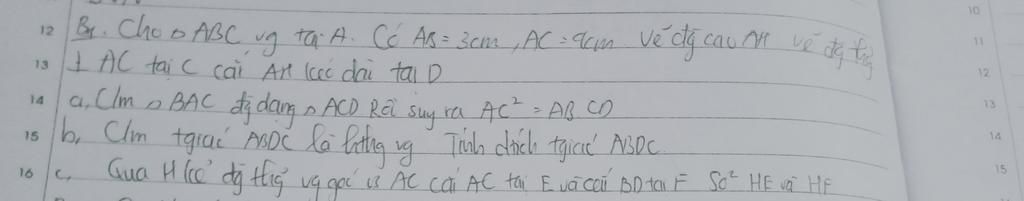 12 B1. Cho △ ABC vg tại A. Có AB = 3cm, AC = 9cm Vẽ đg cao AH vẽ đg thg
13 ⊥ AC tại C cắt AH kéo dài tại D
14 a, C/m △ BAC đg dạng △ ACD Rồi suy ra AC² = AB CD
15 b, C/m tgiác ABDC là hthg vg Tính dtích tgiác ABDC
16 c, Qua H kẻ đg thg vg góc vs AC cắt AC tại E và cắt BD tại F So² HE và HF
10
11
12
13
14
15